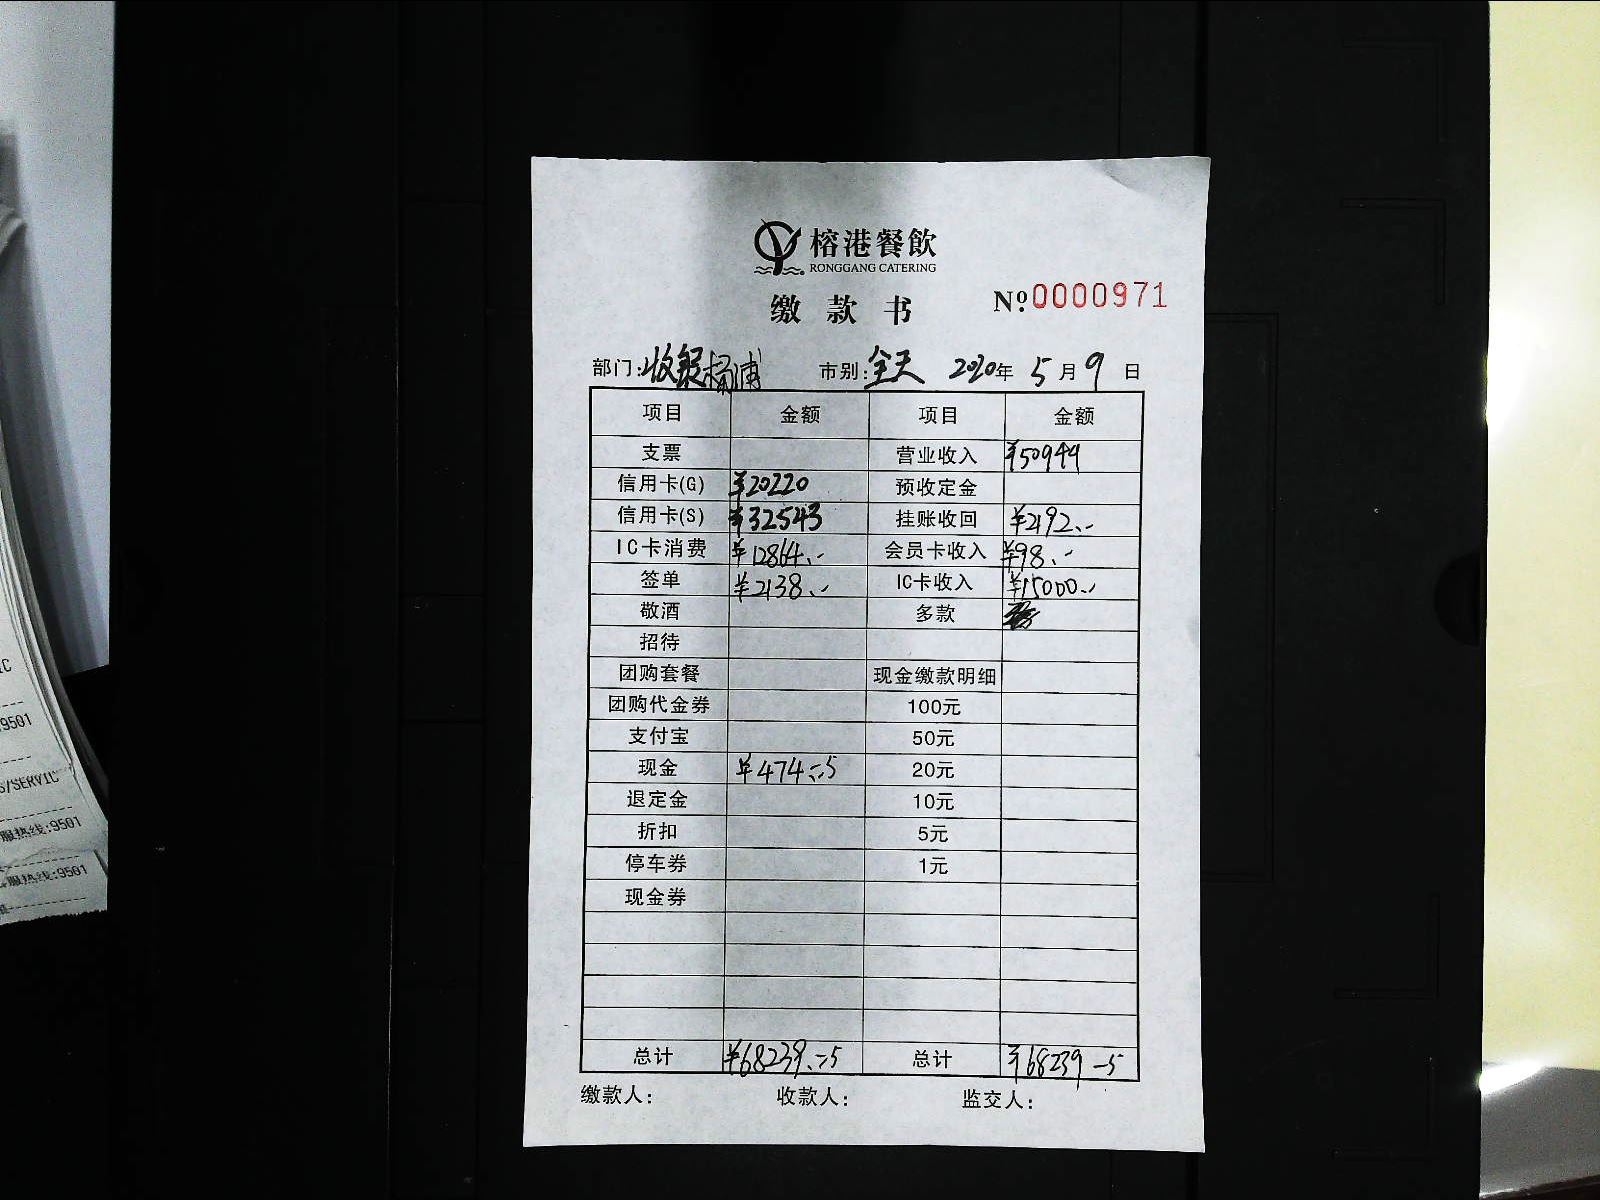 榕港餐飲
RONGGANG CATERING
缴款书 Nº:0000971
部门:收银杨浦 市别:全天 2020年5月9日
项目 金额 项目 金额
支票 营业收入 ¥50949
信用卡(G) ¥20220 预收定金
信用卡(S) ¥32543 挂账收回 ¥2192.-
IC卡消费 ¥12864.- 会员卡收入 ¥98.-
签单 ¥2138.- IC卡收入 ¥15000.-
敬酒 多款
招待
团购套餐 现金缴款明细
团购代金券 100元
支付宝 50元
现金 ¥474.=5 20元
退定金 10元
折扣 5元
停车券 1元
现金券
总计 ¥68239.=5 总计 ¥68239-5
缴款人: 收款人: 监交人:
IC
9501
S/SERVIC
服热线:9501
服热线:9501